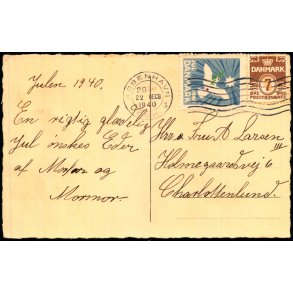 Julen 1940.
En rigtig glædelig
Jul ønskes Eder
af Morfar og
Mormor.
KØBENHAVN
22 DECB
1940
DANMARK
7
DANMARK
Hr. o Fru A Larsen
Holmegaardsvej 6 III
Charlottenlund.